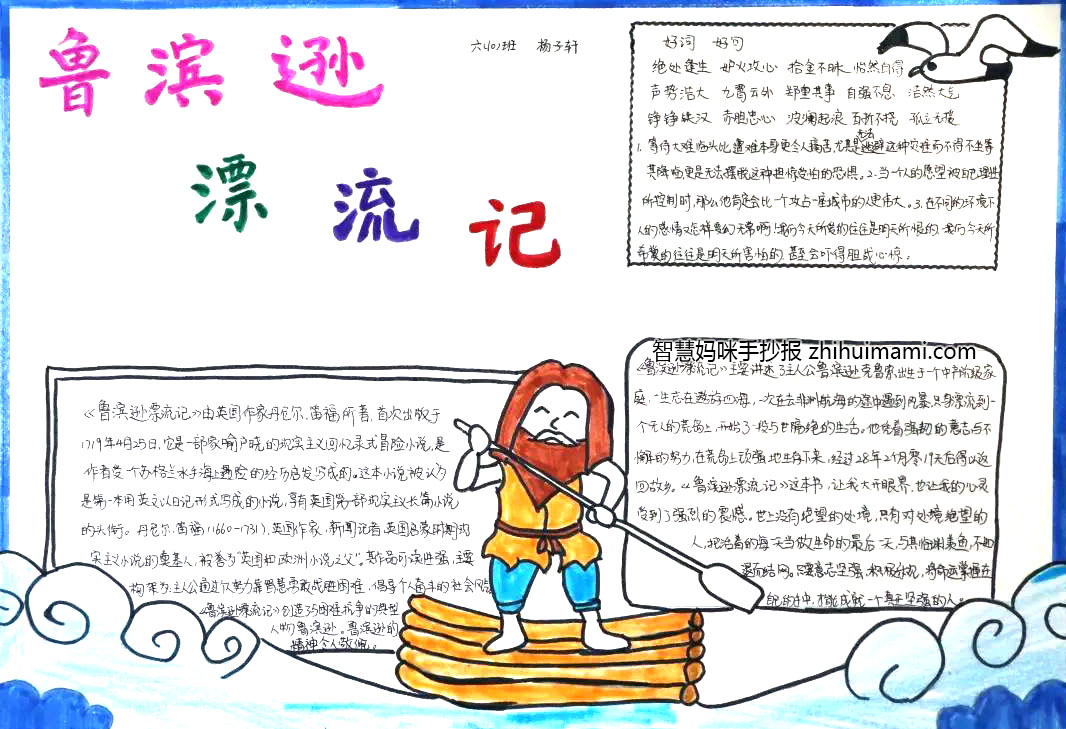 鲁滨逊
漂流记
六(1)班 杨子轩
好词 好句
绝处逢生 妒火攻心 拾金不昧 怡然自得
声势浩大 九霄云外 郑重其事 自强不息 浩然大气
铮铮铁汉 赤胆忠心 波澜起浪 百折不挠 孤立无援
1.等待大难临头比遭难本身更令人痛苦,尤其是无法逃避这种灾难而不得不坐等
其降临更是无法摆脱这种担惊受怕的恐惧。2.当一个人的愿望被自己理性
所控制时,那么他肯定会比一个攻占一座城市的人更伟大。3.在不同的环境下
人的感情又怎样变幻无常啊!我们今天所爱的往往是明天所恨的,我们今天所
希冀的往往是明天所害怕的,甚至会吓得胆战心惊。
《鲁滨逊漂流记》由英国作家丹尼尔.笛福所著,首次出版于
1719年4月25日,它是一部家喻户晓的现实主义回忆录式冒险小说,是
作者受一个苏格兰水手海上遇险的经历启发写成的。这本小说被认为
是第一本用英文以日记形式写成的小说,享有英国第一部现实主义长篇小说
的头衔。丹尼尔.笛福(1660-1731),英国作家,新闻记者,英国启蒙时期现
实主义小说的奠基人,被誉为"英国和欧洲小说之父"。其作品可读性强,主要
构架为:主人公通过个人努力,靠智慧勇敢战胜困难,倡导个人奋斗的社会风气
《鲁滨逊漂流记》创造了与困难抗争的典型
人物鲁滨逊。鲁滨逊的
精神令人敬佩。
智慧妈咪手抄报 zhihuimami.com
《鲁滨逊漂流记》主要讲述了主人公鲁滨逊.克鲁索出生于一个中产阶级家
庭,一生志在遨游四海,一次在去非洲航海的途中遇到风暴,只身漂流到一
个无人的荒岛上,开始了一段与世隔绝的生活。他凭着强韧的意志与不
懈的努力,在荒岛上顽强地生存下来,经过28年2个月零19天后得以返
回故乡。《鲁滨逊漂流记》这本书,让我大开眼界,也让我的心灵
受到了强烈的震憾。世上没有绝望的处境,只有对处境绝望的
人,把活着的每一天当做生命的最后一天,与其临渊羡鱼,不如
退而结网。只要意志坚强,积极乐观,将命运掌握在
自己的手中,才能成就一个真正坚强的人。